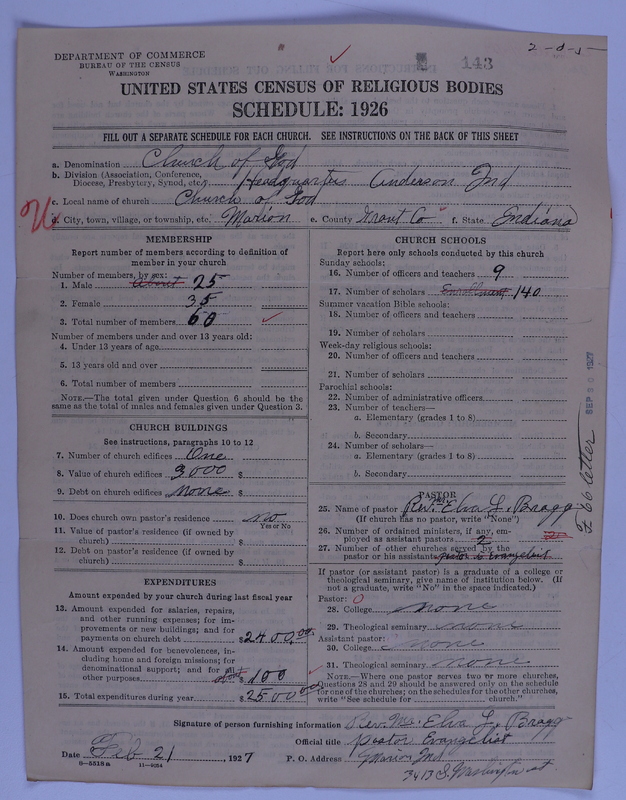 2-0-5
DEPARTMENT OF COMMERCE
BUREAU OF THE CENSUS
WASHINGTON
143
UNITED STATES CENSUS OF RELIGIOUS BODIES
SCHEDULE: 1926
FILL OUT A SEPARATE SCHEDULE FOR EACH CHURCH. SEE INSTRUCTIONS ON THE BACK OF THIS SHEET
a. Denomination Church of God
b. Division (Association, Conference, Diocese, Presbytery, Synod, etc.) Headquarters Anderson Ind
c. Local name of church Church of God
d. City, town, village, or township, etc. Marion e. County Grant Co f. State Indiana
MEMBERSHIP
Report number of members according to definition of
member in your church
Number of members, by sex:
1. Male About 25
2. Female 35
3. Total number of members 60
Number of members under and over 13 years old:
4. Under 13 years of age
5. 13 years old and over
6. Total number of members
NOTE.—The total given under Question 6 should be
same as the total of males and females given under Question 3.
CHURCH BUILDINGS
See instructions, paragraphs 10 to 12
7. Number of church edifices One
8. Value of church edifices 3000 $
9. Debt on church edifices none $
10. Does church own pastor's residence no
Yes or No
11. Value of pastor's residence (if owned by
church) $
12. Debt on pastor's residence (if owned by
church) $
EXPENDITURES
Amount expended by your church during last fiscal year
13. Amount expended for salaries, repairs,
and other running expenses; for im-
provements or new buildings; and for
payments on church debt $2400.00
14. Amount expended for benevolences, in-
cluding home and foreign missions; for
denominational support; and for all
other purposes $100
15. Total expenditures during year $2500.00
CHURCH SCHOOLS
Report here only schools conducted by this church
Sunday schools:
16. Number of officers and teachers 9
17. Number of scholars Enrollment 140
Summer vacation Bible schools:
18. Number of officers and teachers
19. Number of scholars
Week-day religious schools:
20. Number of officers and teachers
21. Number of scholars
Parochial schools:
22. Number of administrative officers
23. Number of teachers—
a. Elementary (grades 1 to 8)
b. Secondary
24. Number of scholars—
a. Elementary (grades 1 to 8)
b. Secondary
PASTOR
25. Name of pastor Rev. Mrs. Elva L. Bragg
(If church has no pastor, write "None")
26. Number of ordained ministers, if any, em-
ployed as assistant pastors 2
27. Number of other churches served by the
pastor or his assistants pastor is Evangelist
If pastor (or assistant pastor) is a graduate of a college or
theological seminary, give name of institution below. (If
not a graduate, write "No" in the space indicated.)
Pastor: 0
28. College none
29. Theological seminary none
Assistant pastor:
30. College none
31. Theological seminary none
NOTE.—Where one pastor serves two or more churches,
Questions 28 and 29 should be answered only on the schedule
for one of the churches; on the schedules for the other churches,
write "See schedule for church."
SEP 30 1927
F 66 letter
Signature of person furnishing information Rev. Mrs. Elva L. Bragg
Official title Pastor Evangelist
Date Feb 21, 1927 P. O. Address Marion Ind
3413 S. Washington st
8-5518a 11-9254